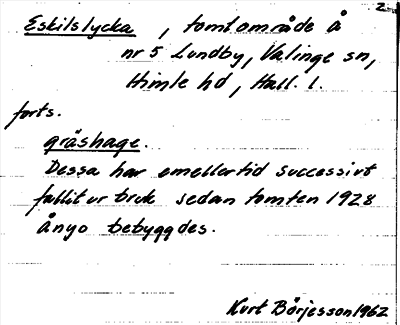 2.
Eskilslycka, tomtområde å
nr 5 Lundby, Valinge sn,
Himle hd, Hall. l.
forts.
gräshage.
Dessa har emellertid successivt
fallit ur bruk sedan tomten 1928
ånyo bebyggdes.
Kurt Börjesson 1962